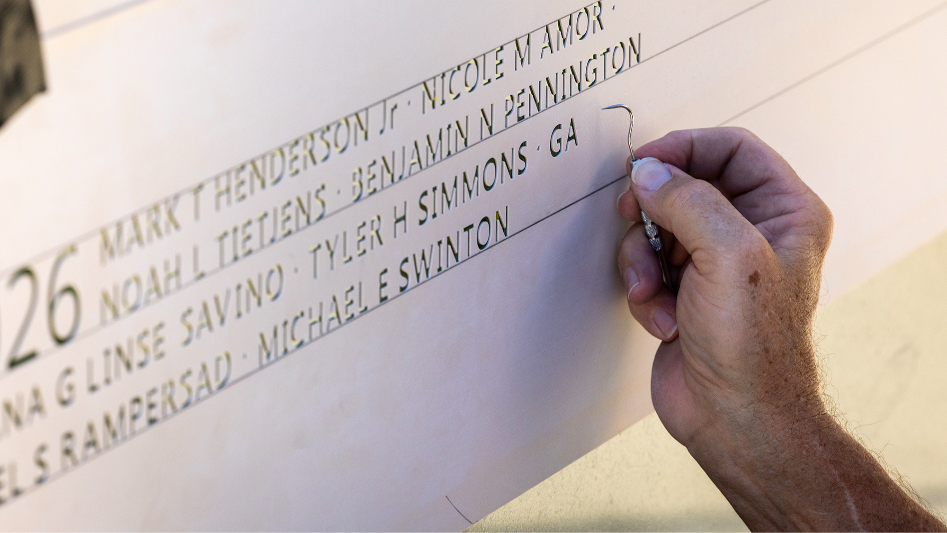 26 MARK T HENDERSON Jr · NICOLE M AMOR ·
NOAH L TIETJENS · BENJAMIN N PENNINGTON
NA G LINSE SAVINO · TYLER H SIMMONS · GA
EL S RAMPERSAD · MICHAEL E SWINTON